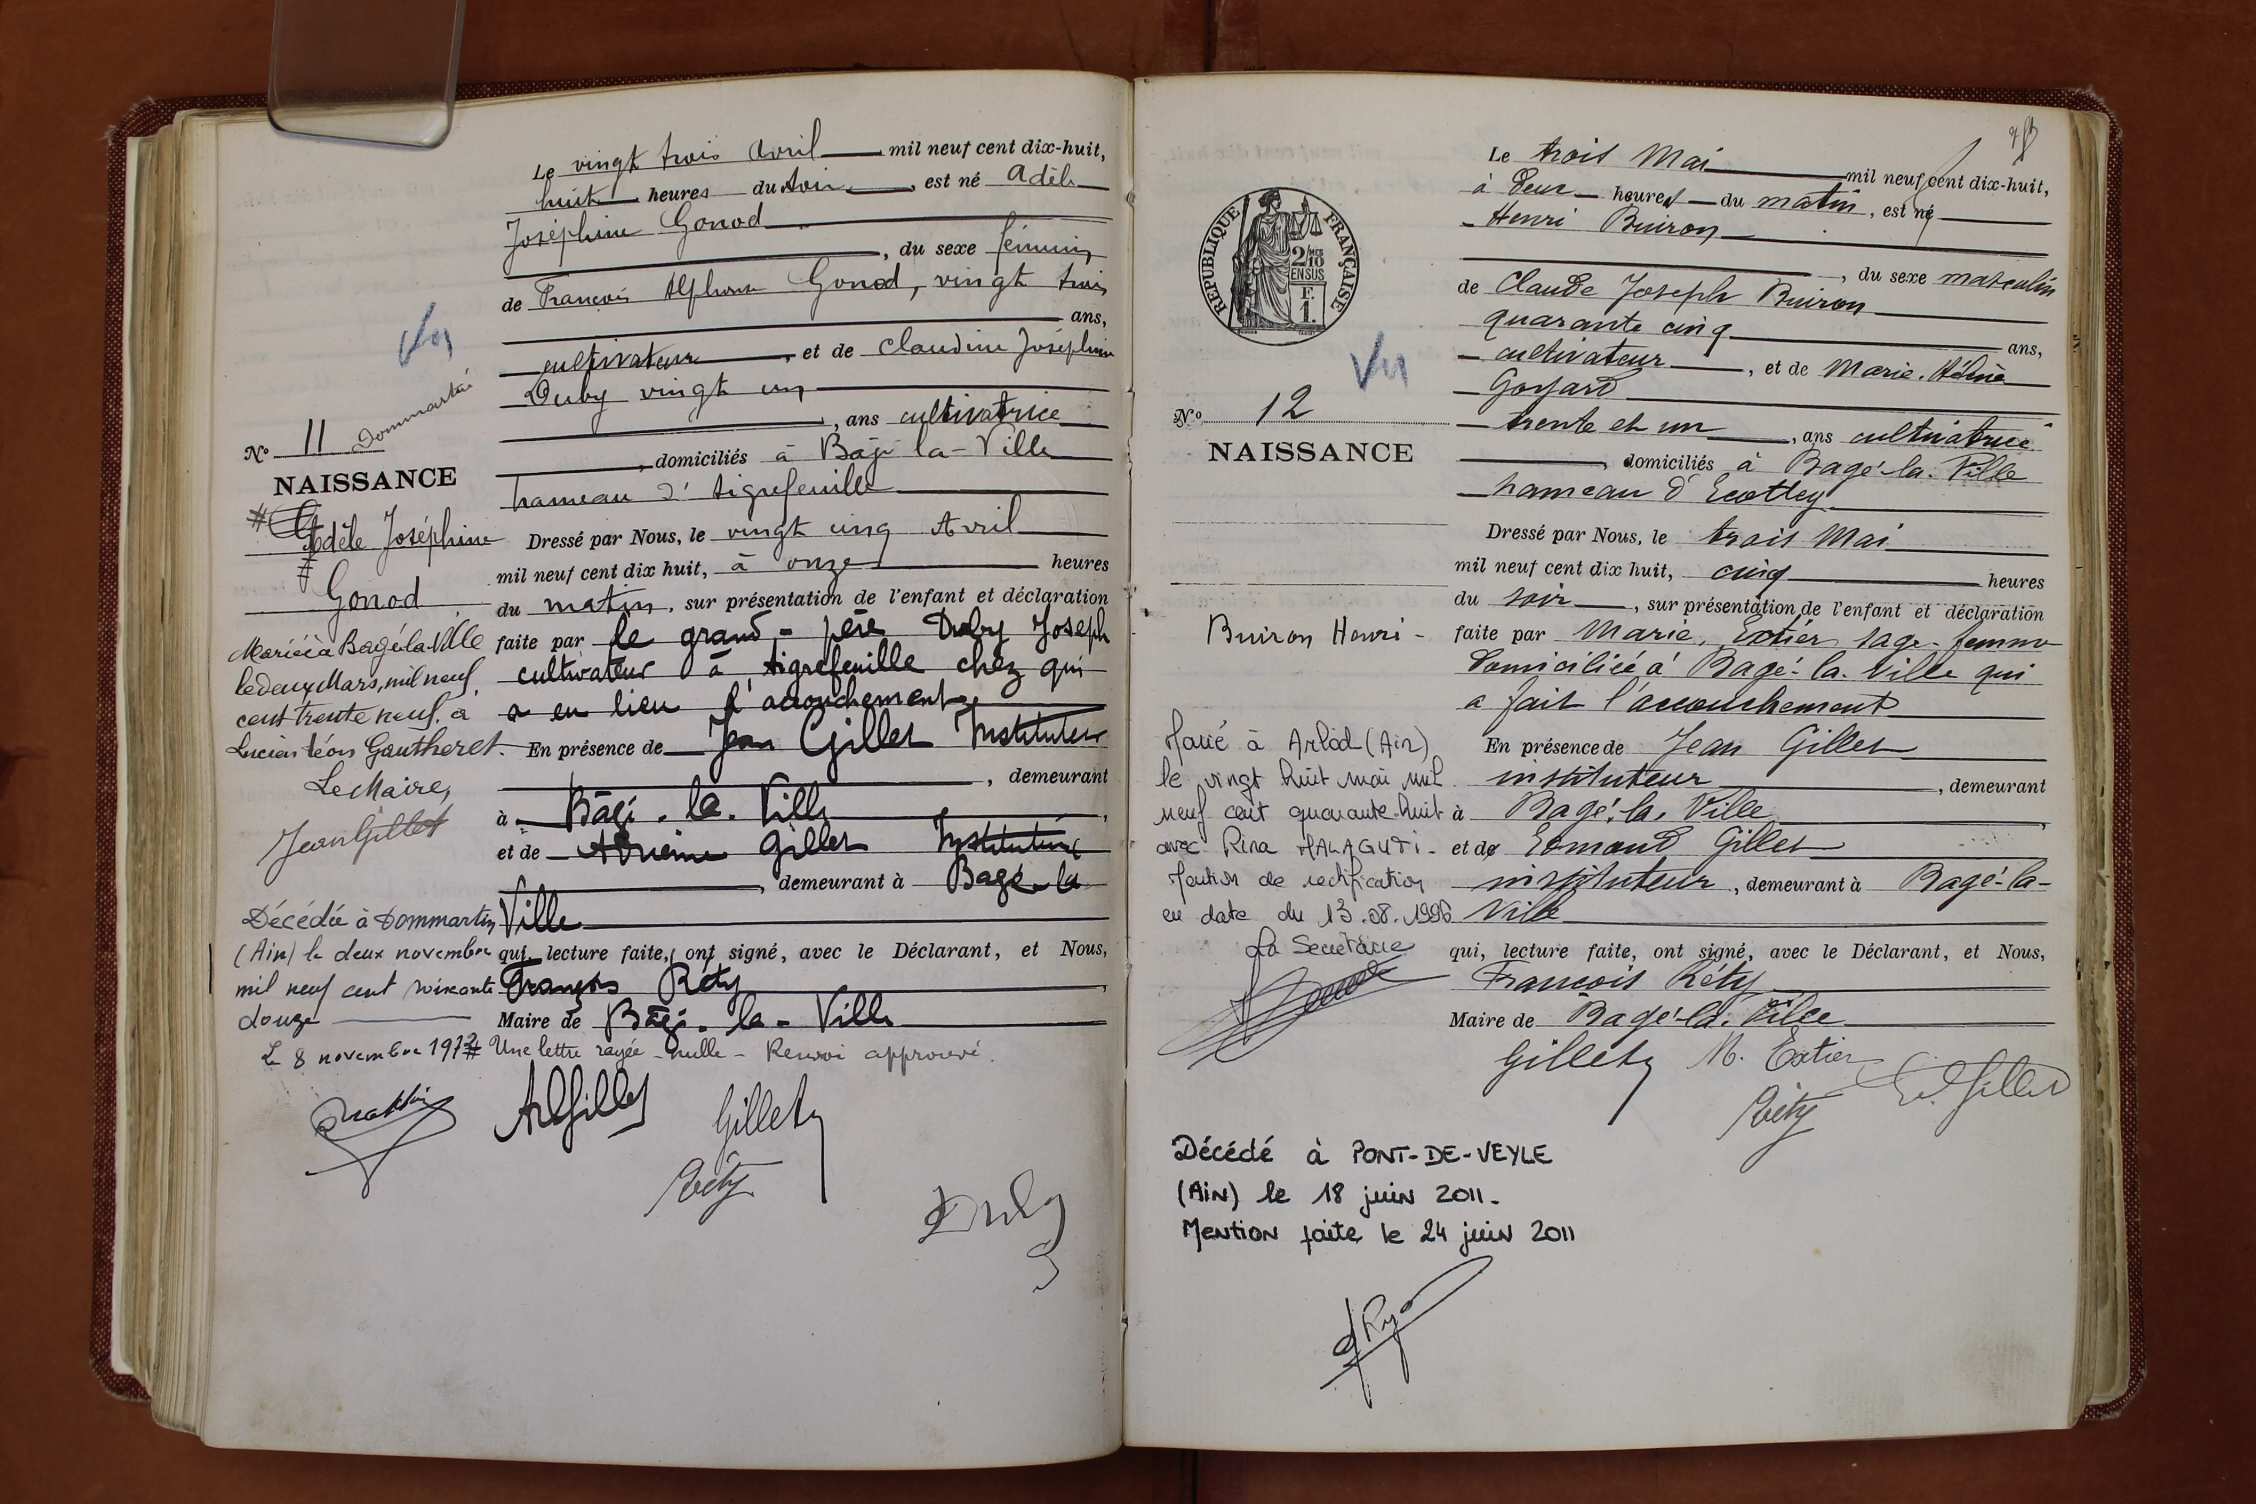 Le vingt trois Avril mil neuf cent dix-huit,
huit heures du soir, est né Adèle
Joséphine Gonod
, du sexe féminin
de François Alphonse Gonod, vingt trois
ans,
cultivateur, et de Claudine Joséphine
Duby vingt un
, ans cultivatrice
, domiciliés à Bâgé la-Ville
hameau d'Aigrefeuille
Dressé par Nous, le vingt cinq Avril
mil neuf cent dix huit, à onze heures
du matin, sur présentation de l'enfant et déclaration
faite par le grand-père Duby Joseph
cultivateur à Aigrefeuille chez qui
a eu lieu l'accouchement
En présence de Jean Gillet Instituteur
, demeurant
à Bâgé-la-Ville,
et de Adrienne Gillet Institutrice
, demeurant à Bagé-la
Ville
qui, lecture faite, ont signé, avec le Déclarant, et Nous,
François Réty,
Maire de Bâgé-la-Ville
# Une lettre rayée-nulle-Renvoi approuvé.
AdGillet
Gillet
Réty
Duby
Vu
Dommartin
No 11
NAISSANCE
#
Adèle Joséphine
#
Gonod
Mariée à Bagé-la-Ville
le deux Mars, mil neuf
cent trente neuf. à
Lucien Léon Gautheret.
Le Maire,
Jean Gillet
Décédée à Dommartin
(Ain) le deux novembre
mil neuf cent soixante
douze
Le 8 novembre 1972
Le trois Mai mil neuf cent dix-huit,
à deux heures du matin, est né
Henri Buiron
, du sexe masculin
de Claude Joseph Buiron
quarante cinq
ans,
cultivateur, et de Marie.
Goyard
trente et un, ans cultivatrice
, domiciliés à Bagé-la-Ville
hameau d'Ecottey
Dressé par Nous, le trois Mai
mil neuf cent dix huit, cinq heures
du soir, sur présentation de l'enfant et déclaration
faite par Marie, Extier sage-femme
domiciliée à Bagé-la-Ville qui
a fait l'accouchement
En présence de Jean Gillet
instituteur, demeurant
à Bagé-la-Ville,
et de Edmond Gillet
instituteur, demeurant à Bagé-la-
Ville
qui, lecture faite, ont signé, avec le Déclarant, et Nous,
François Réty
Maire de Bagé-la-Ville
Gillet M. Extier
Réty Ed. Gillet
RÉPUBLIQUE FRANÇAISE
2/10
EN SUS
F.
1.
Vu
No 12
NAISSANCE
Buiron Henri-
Marié à Arlod (Ain)
le vingt huit mai mil
neuf cent quarante-huit
avec Rina MALAGUTI-
Mention de rectification
en date du 13.08.1996
La Secrétaire
Décédé à PONT-DE-VEYLE
(Ain) le 18 juin 2011-
Mention faite le 24 juin 2011